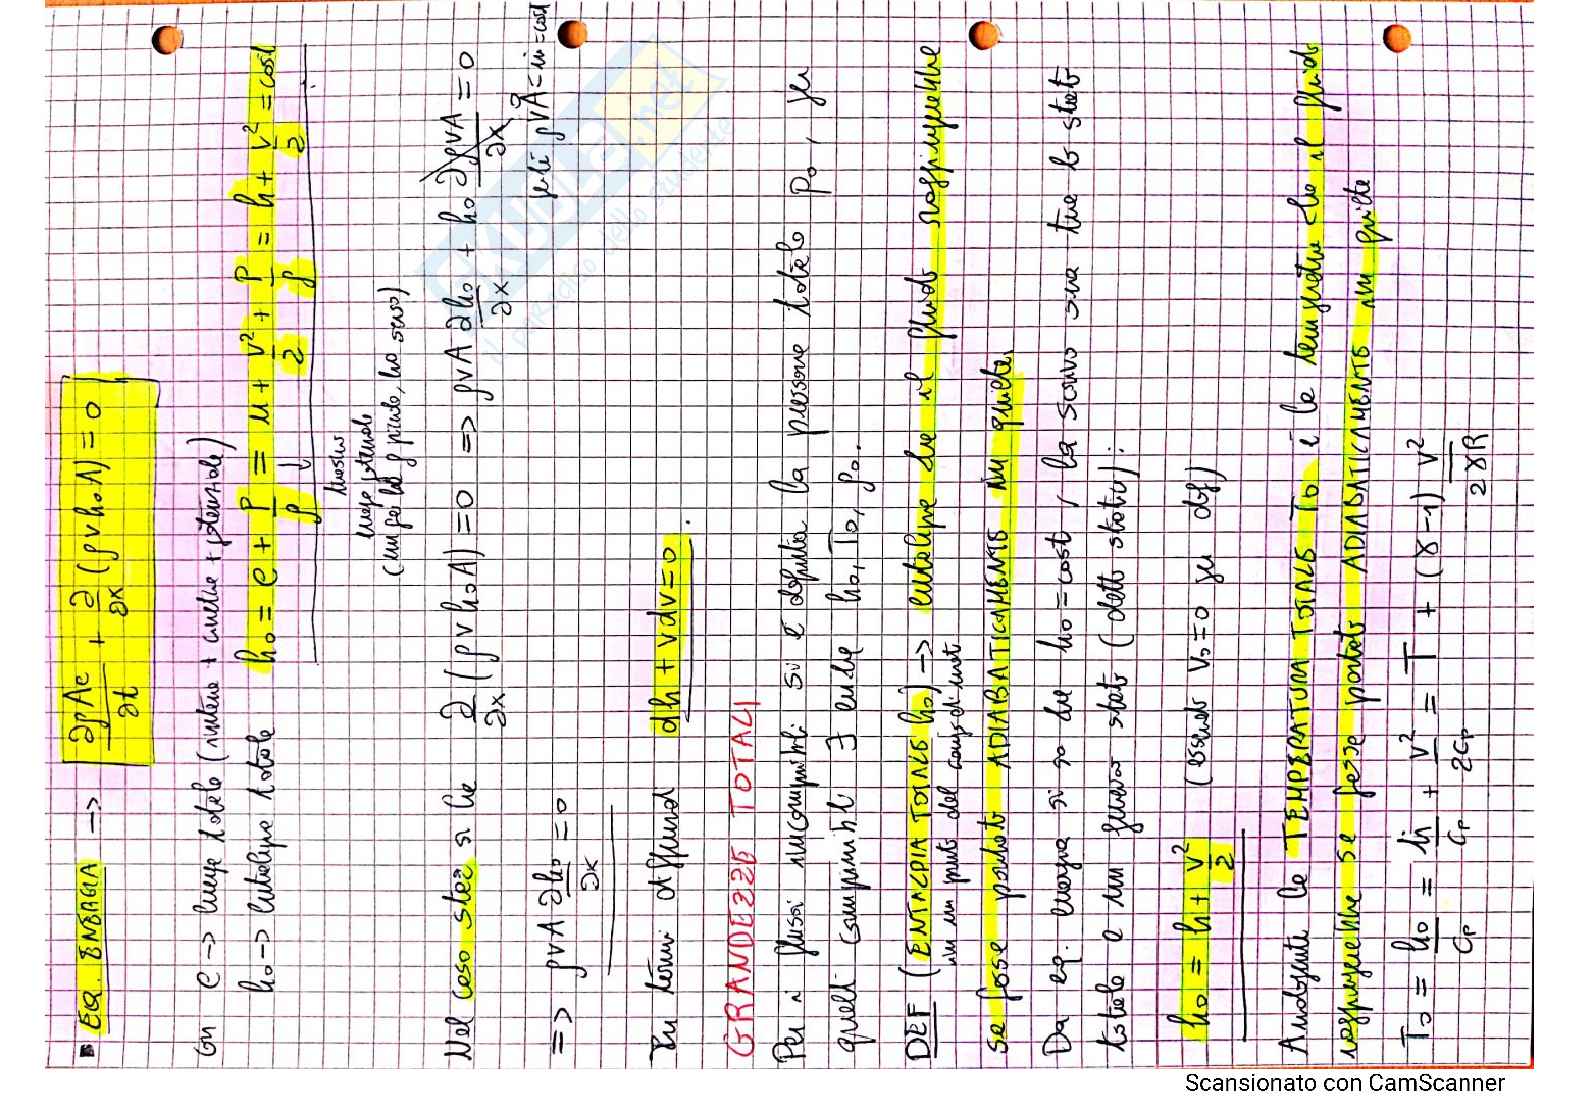 ▪ EQ. ENERGIA → ∂ρAe/∂t + ∂/∂x (ρvh₀A) = 0
con e → energia totale (interna + cinetica + potenziale)
h₀ → entalpia totale h₀ = e + P/ρ = u + v²/2 + P/ρ = h + v²/2 = cost
energia potenziale
Nel caso staz. si ha ∂/∂x (ρvh₀A) = 0 => ρvA ∂h₀/∂x + h₀ ∂ρvA/∂x = 0
perché ρvA = ṁ = cost
=> ρvA ∂h₀/∂x = 0
In termini differenziali dh + vdv = 0.
GRANDEZZE TOTALI
Per i flussi incomprimibili si è definita la pressione totale P₀, per
quelli comprimibili ∃ anche h₀, T₀, ρ₀.
DEF (ENTALPIA TOTALE h₀) → entalpia che il fluido raggiungerebbe
in un punto del campo di moto
se fosse portato ADIABATICAMENTE in quiete.
Da eq. energia si sa che h₀ = cost, la scrivo tra lo stato
totale e un generico stato (detto statico):
h₀ = h + v²/2 (essendo V₀ = 0 per def)
Analogamente la TEMPERATURA TOTALE T₀ è la temperatura che il fluido
raggiungerebbe se fosse portato ADIABATICAMENTE in quiete
T₀ = h₀/Cp = h/Cp + v²/2Cp = T + (γ-1) v²/2γR
SKUOLA.net
il paradiso dello studente
Scansionato con CamScanner